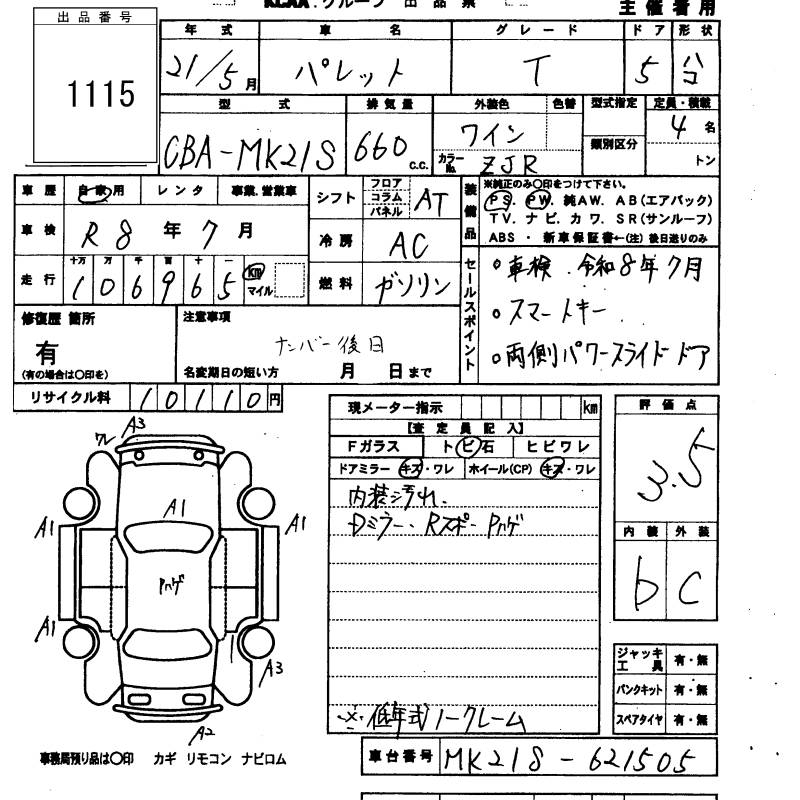 KCAA.グループ 出品票
主催者用
出品番号
1115
年式 車名 グレード ドア 形状
21/5月 パレット T 5 ハコ
型式 排気量 外装色 色替 型式指定 定員・積載
CBA-MK21S 660 c.c. ワイン 類別区分 4名
カラーNo. ZJR トン
車歴 自家用 レンタ 事業.営業車
シフト フロア コラム パネル AT
装備品
※純正のみ○印をつけて下さい。
PS. PW. 純AW. AB(エアバッグ)
TV. ナビ. カワ. SR(サンルーフ)
ABS・新車保証書←(注)後日送りのみ
車検 R8年7月
冷房 AC
走行 十万 万 千 百 十 一
106965 km マイル
燃料 ガソリン
セールスポイント
○車検.令和8年7月
○スマートキー.
○両側パワースライドドア
修復歴 箇所
有
(有の場合は○印を)
注意事項
ナンバー後日
名変期日の短い方 月 日まで
リサイクル料 10110円
現メーター指示 km
【査定員記入】
Fガラス トビ石 ヒビワレ
ドアミラー キズ・ワレ ホイール(CP) キズ・ワレ
内装汚れ.
Dミラー.Rスポーハゲ
※低年式ノークレーム
評価点
3.5
内装 外装
b C
ジャッキ工具 有・無
パンクキット 有・無
スペアタイヤ 有・無
ワレ A3
A1
A1 A1
ハゲ
A1
A3
A2
事務局預り品は○印 カギ リモコン ナビロム
車台番号 MK21S-621505